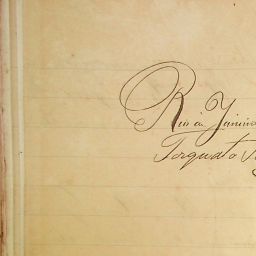 Rio de Janeiro
Torquato